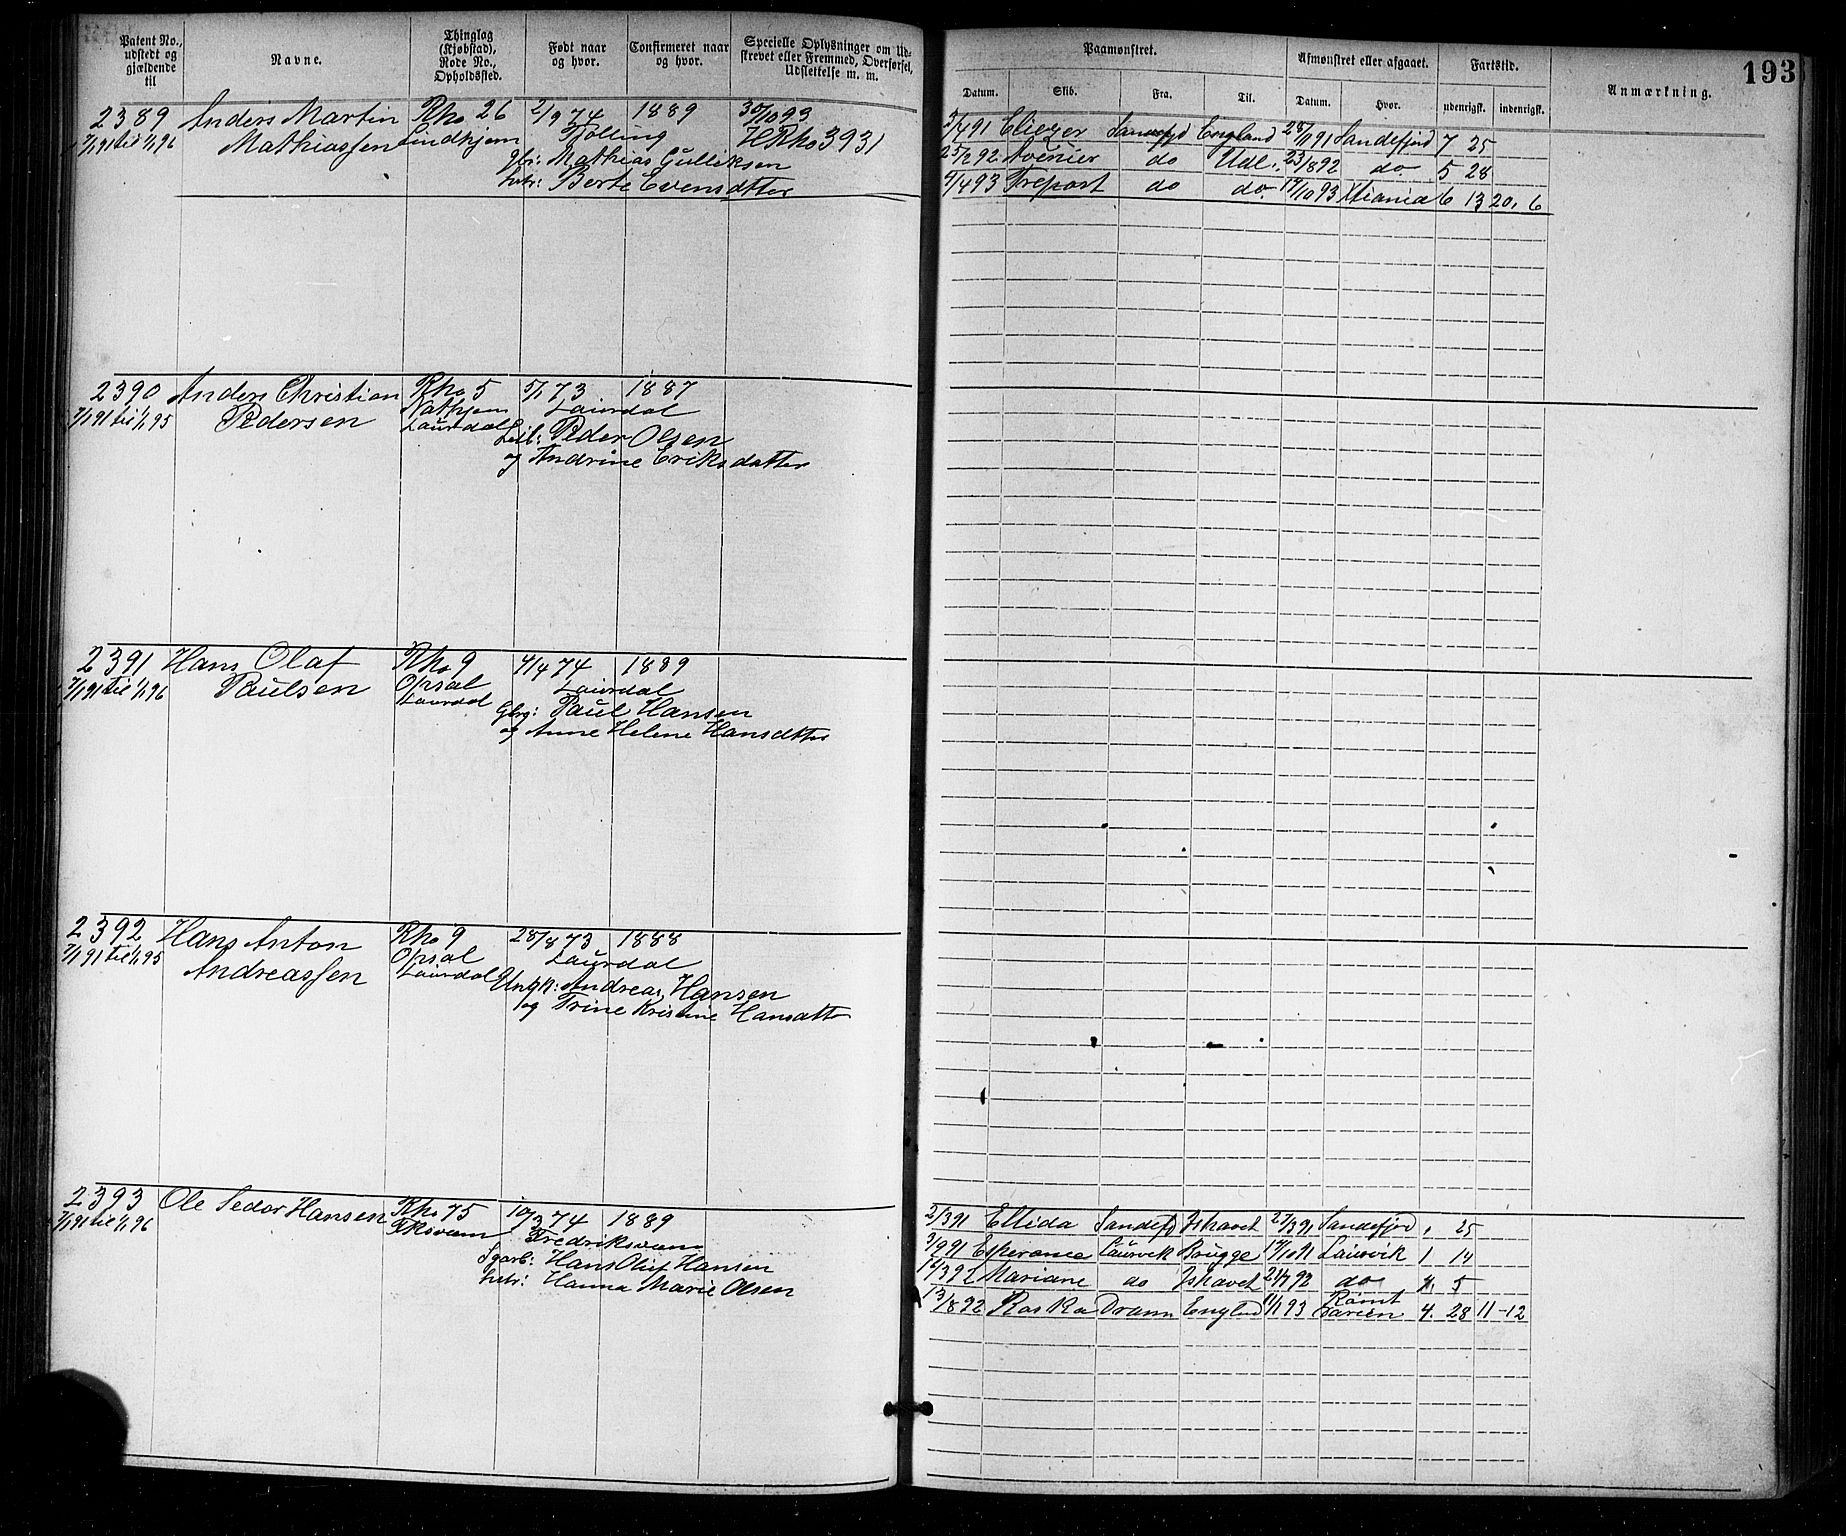 193
Patent No., udstedt og gjældende til
Navne.
Thinglag (Kjøbstad), Rode No., Opholdssted.
Født naar og hvor.
Confirmeret naar og hvor.
Specielle Oplysninger om Udskrevet eller Fremmed, Overførsel, Udslettelse m. m.
Paamønstret.
Afmønstret eller afgaaet.
Fartstid.
Anmærkning.
Datum. Skib. Fra. Til. Datum. Hvor. udenrigsk. indenrigsk.
2389 Anders Martin Rho 26 2/9 74 1889 30/10 93
7/1 91 til 1/1 96 Mathiassen Lindhjem Tjølling HRho 3931
Mathias Gulliksen
Berte Evensdatter
5/4 91 Eliezer Sandefjd England 28/11 91 Sandefjord 7 25
25/2 92 Avenier do Udl. 23/8 92 do. 5 28
9/4 93 Treport do do. 19/10 93 Xtiania 6 13 20, 6
2390 Anders Christian Rho 5 5/1 73 1887
7/1 91 til 1/1 95 Pedersen Laurdal Laurdal
Peder Olsen
og Andrine Eriksdatter
2391 Hans Olaf Rho 9 4/4 74 1889
7/1 91 til 1/1 96 Paulsen Opsal Laurdal
Laurdal
Gbrg: Paul Hansen
og Anne Helene Hansdtter
2392 Hans Anton Rho 9 28/8 73 1888
7/1 91 til 1/1 95 Andreassen Opsal Laurdal
Laurdal
Ungk: Andreas Hansen
og Trine Kristine Hansdatt
2393 Ole Sedor Hansen Rho 75 10/3 74 1889
7/1 91 til 1/1 96 Fksværn Fredriksværn
Hans Oluf Hansen
Hanna Marie Olsen
2/3 91 Ellida Sandefj Ishavet 27/3 91 Sandefjord , 25
3/9 91 Esperance Laurvik Brügge 17/10 91 Laurvik 1 14
16/3 92 Mariane do Ishavet 21/7 92 do 4. 5
13/8 92 Roska Dram Englnd 11/1 93 Rømt 4. 28 11-12